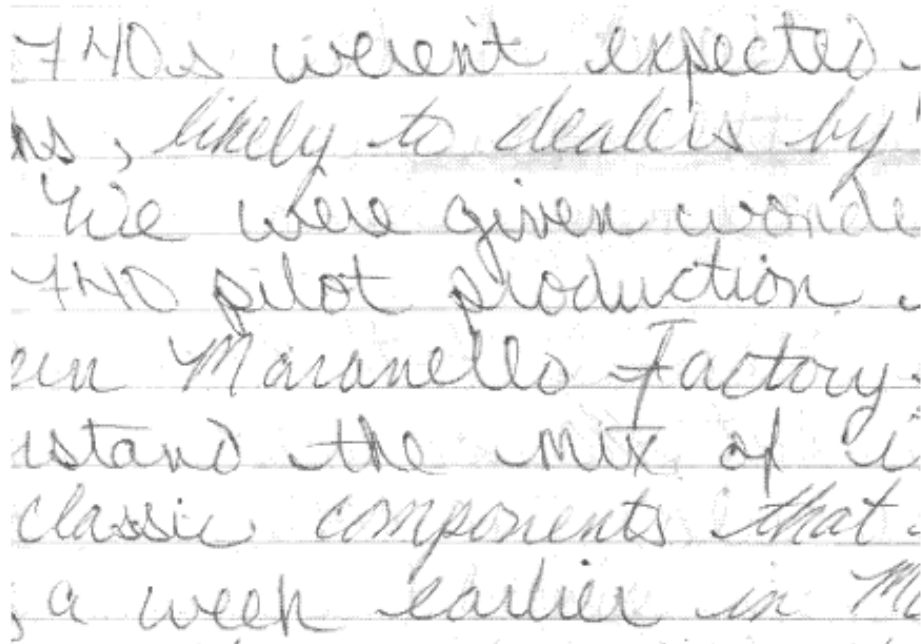 740s werent expected
ns, likely to dealers by
We were given wonde
740 pilot production
en Maranello Factory.
rstand the mix of i
classic components that
, a week earlier in Ma